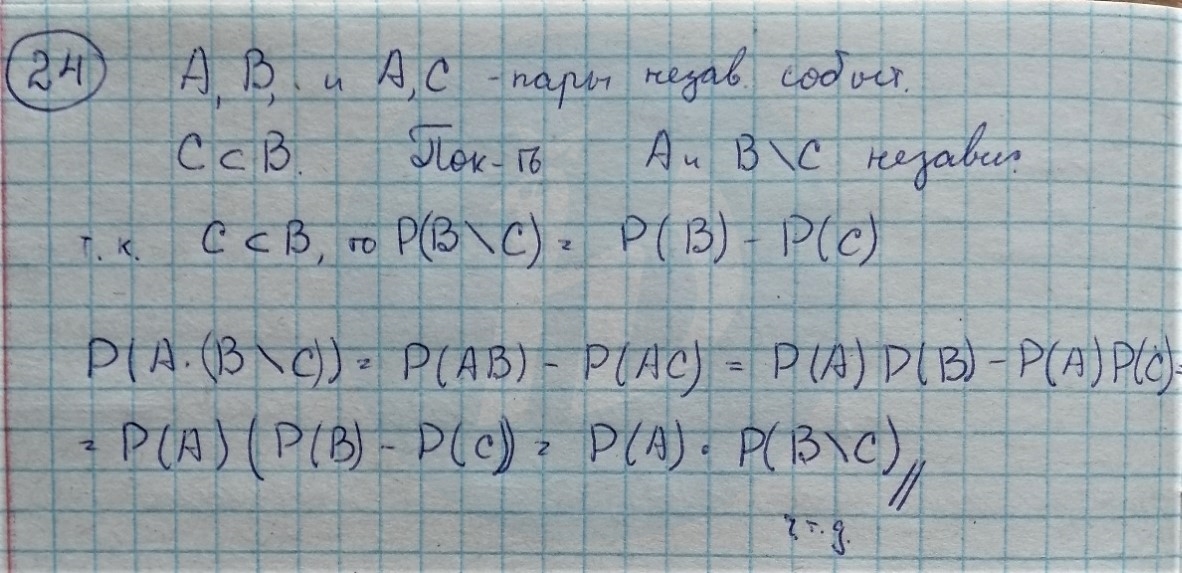 24 A, B, и A, C - пары незав. событ.
C ⊂ B. Пок-ть A и B\C независ.
т.к. C ⊂ B, то P(B\C) = P(B) - P(C)
P(A·(B\C)) = P(AB) - P(AC) = P(A)P(B) - P(A)P(C) =
= P(A)(P(B) - P(C)) = P(A)·P(B\C) //
ч.т.д.